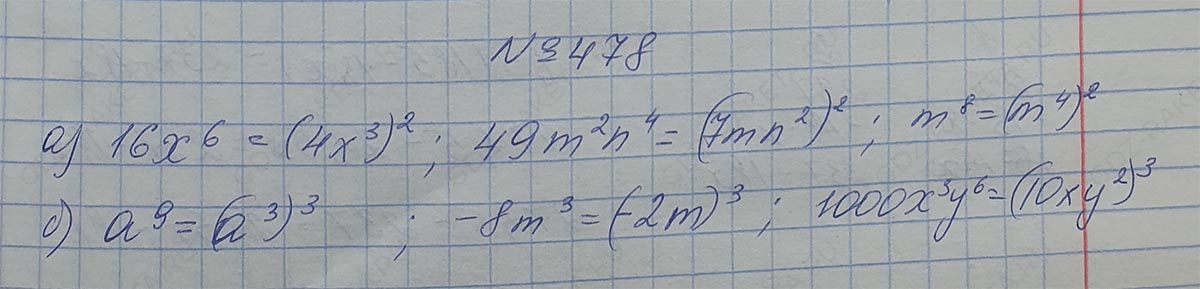 № 478
а) 16x⁶ = (4x³)²; 49m²n⁴ = (7mn²)²; m⁸ = (m⁴)²
б) a⁹ = (a³)³ ; -8m³ = (-2m)³; 1000x³y⁶ = (10xy²)³